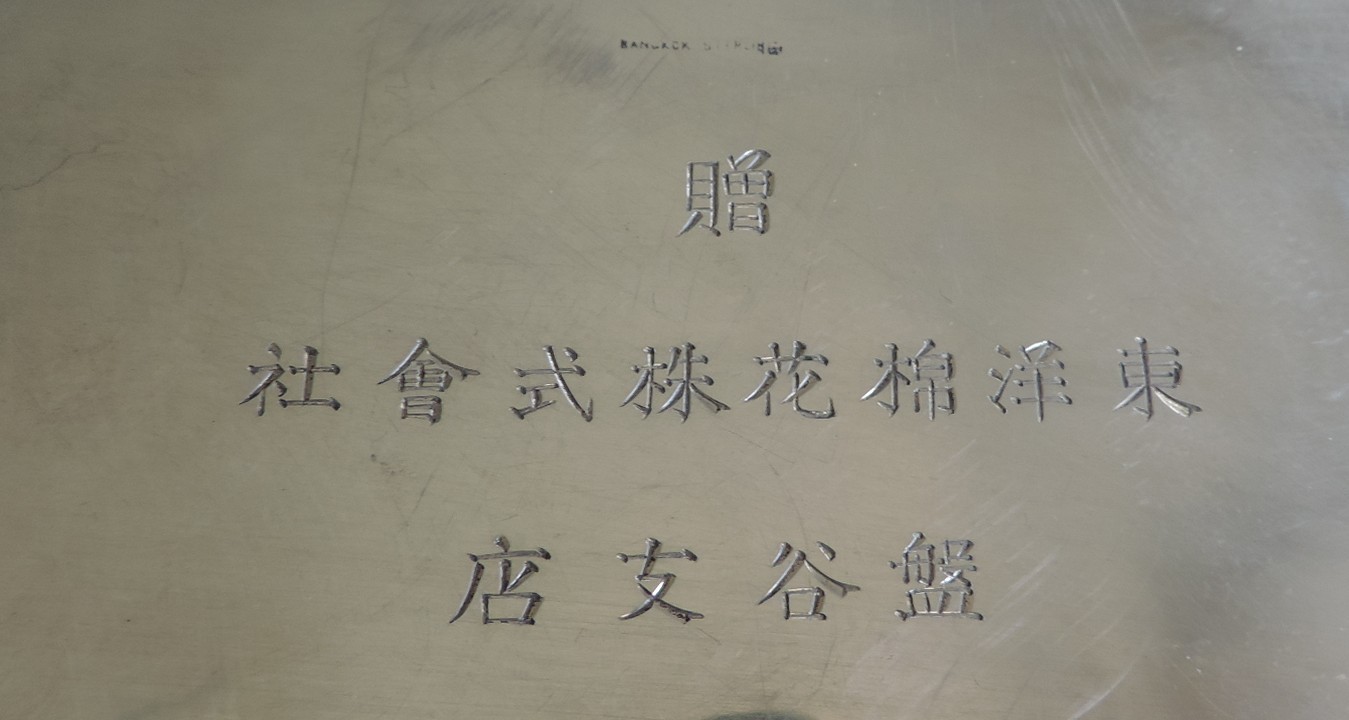 BANGKOK
贈
東洋棉花株式會社
盤谷支店